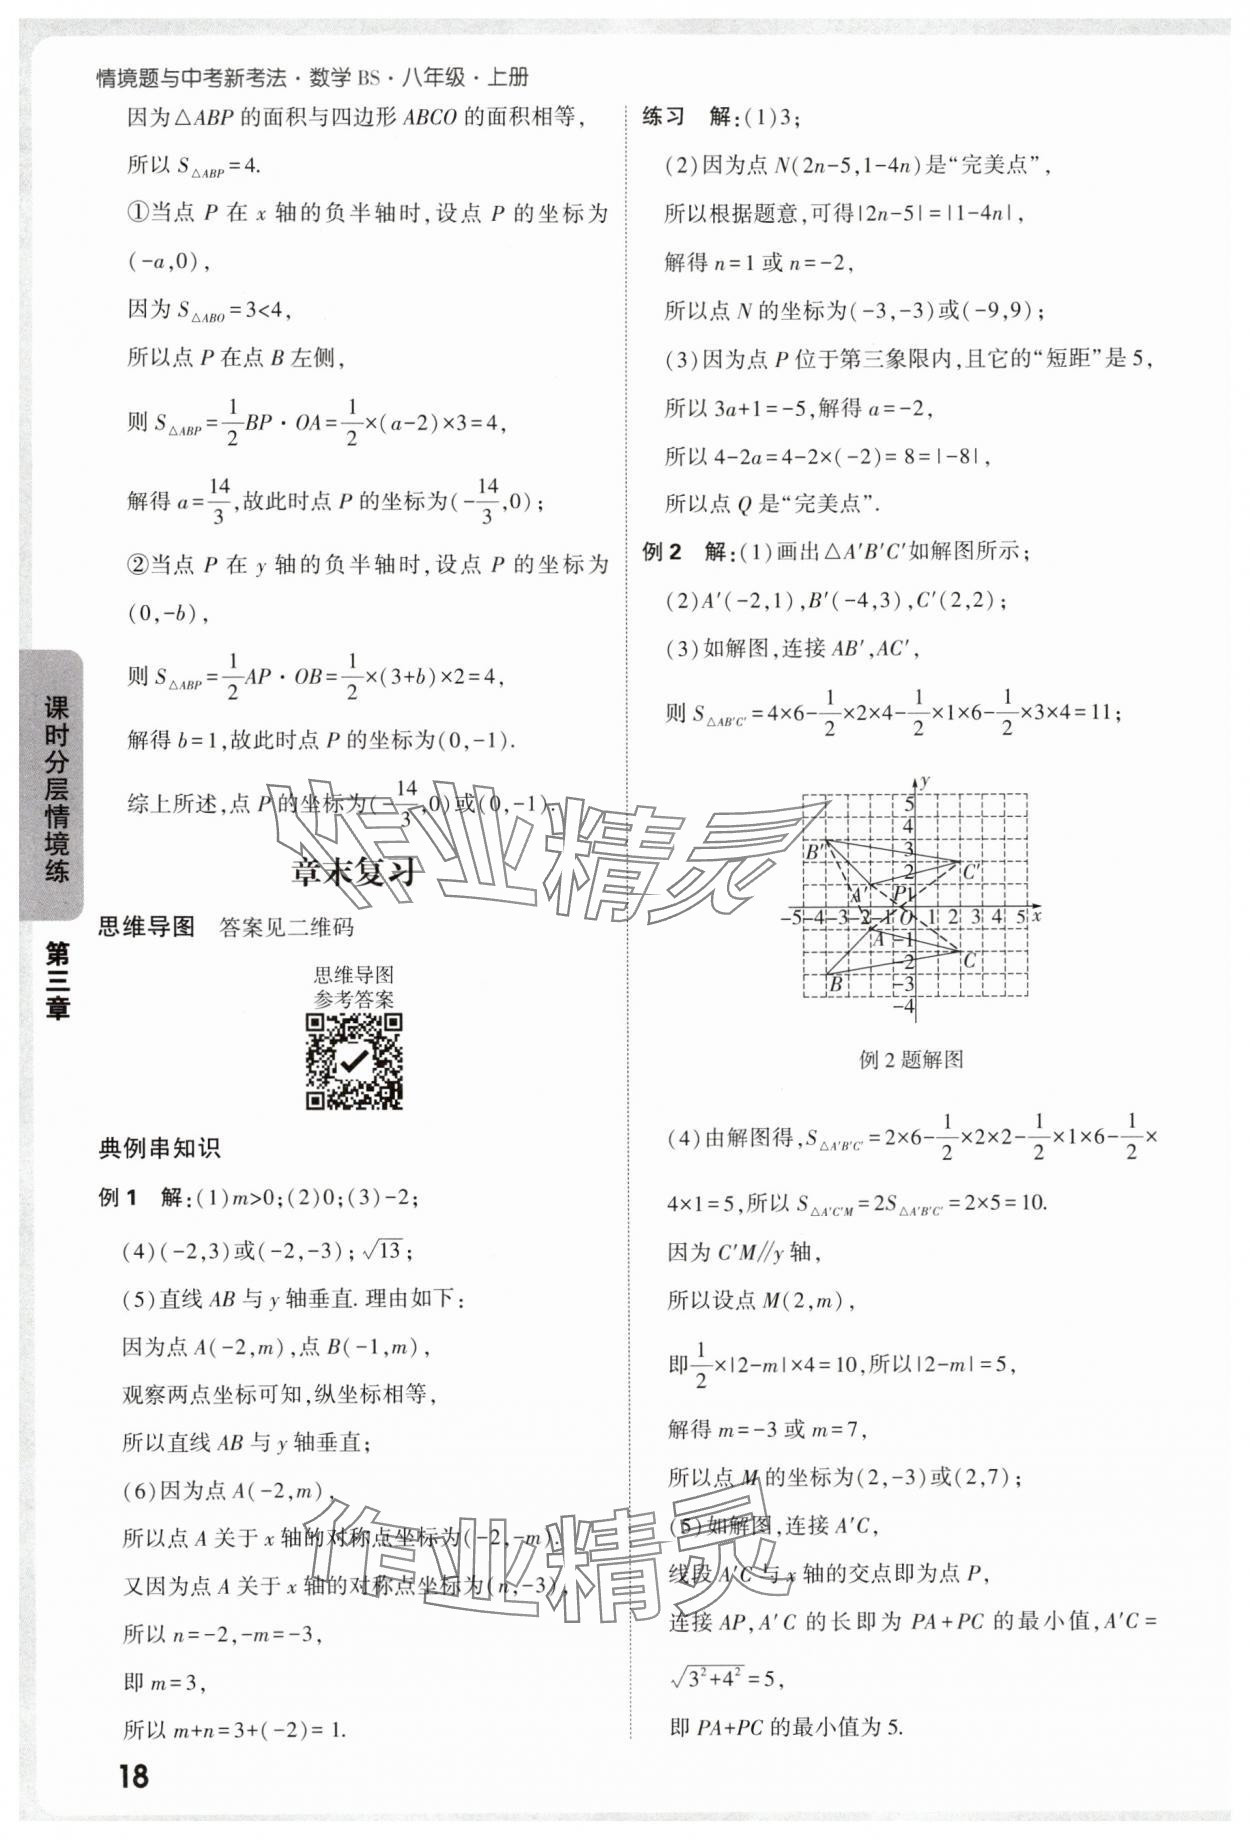 情境题与中考新考法·数学 BS·八年级·上册
因为△ABP 的面积与四边形 ABCO 的面积相等,
所以 S△ABP=4.
①当点 P 在 x 轴的负半轴时,设点 P 的坐标为
(-a,0),
因为 S△ABO=3<4,
所以点 P 在点 B 左侧,
则 S△ABP=1/2BP·OA=1/2×(a-2)×3=4,
解得 a=14/3,故此时点 P 的坐标为(-14/3,0);
②当点 P 在 y 轴的负半轴时,设点 P 的坐标为
(0,-b),
则 S△ABP=1/2AP·OB=1/2×(3+b)×2=4,
解得 b=1,故此时点 P 的坐标为(0,-1).
综上所述,点 P 的坐标为(-14/3,0)或(0,-1).
章末复习
思维导图 答案见二维码
思维导图
参考答案
典例串知识
例1 解:(1)m>0;(2)0;(3)-2;
(4)(-2,3)或(-2,-3);√13;
(5)直线 AB 与 y 轴垂直. 理由如下:
因为点 A(-2,m),点 B(-1,m),
观察两点坐标可知,纵坐标相等,
所以直线 AB 与 y 轴垂直;
(6)因为点 A(-2,m),
所以点 A 关于 x 轴的对称点坐标为(-2,-m).
又因为点 A 关于 x 轴的对称点坐标为(n,-3),
所以 n=-2,-m=-3,
即 m=3,
所以 m+n=3+(-2)=1.
练习 解:(1)3;
(2)因为点 N(2n-5,1-4n)是“完美点”,
所以根据题意,可得|2n-5|=|1-4n|,
解得 n=1 或 n=-2,
所以点 N 的坐标为(-3,-3)或(-9,9);
(3)因为点 P 位于第三象限内,且它的“短距”是 5,
所以 3a+1=-5,解得 a=-2,
所以 4-2a=4-2×(-2)=8=|-8|,
所以点 Q 是“完美点”.
例2 解:(1)画出△A′B′C′如解图所示;
(2)A′(-2,1),B′(-4,3),C′(2,2);
(3)如解图,连接 AB′,AC′,
则 S△AB′C′=4×6-1/2×2×4-1/2×1×6-1/2×3×4=11;
y
5
4
B′ 3
2 C′
A′ P 1
-5 -4 -3 -2 -1 O 1 2 3 4 5 x
A -1
-2 C
B -3
-4
例 2 题解图
(4)由解图得,S△A′B′C′=2×6-1/2×2×2-1/2×1×6-1/2×
4×1=5,所以 S△A′C′M=2S△A′B′C′=2×5=10.
因为 C′M∥y 轴,
所以设点 M(2,m),
即1/2×|2-m|×4=10,所以|2-m|=5,
解得 m=-3 或 m=7,
所以点 M 的坐标为(2,-3)或(2,7);
(5)如解图,连接 A′C,
线段 A′C 与 x 轴的交点即为点 P,
连接 AP,A′C 的长即为 PA+PC 的最小值,A′C=
√3²+4²=5,
即 PA+PC 的最小值为 5.
课时分层情境练
第三章
18
作业精灵
作业精灵